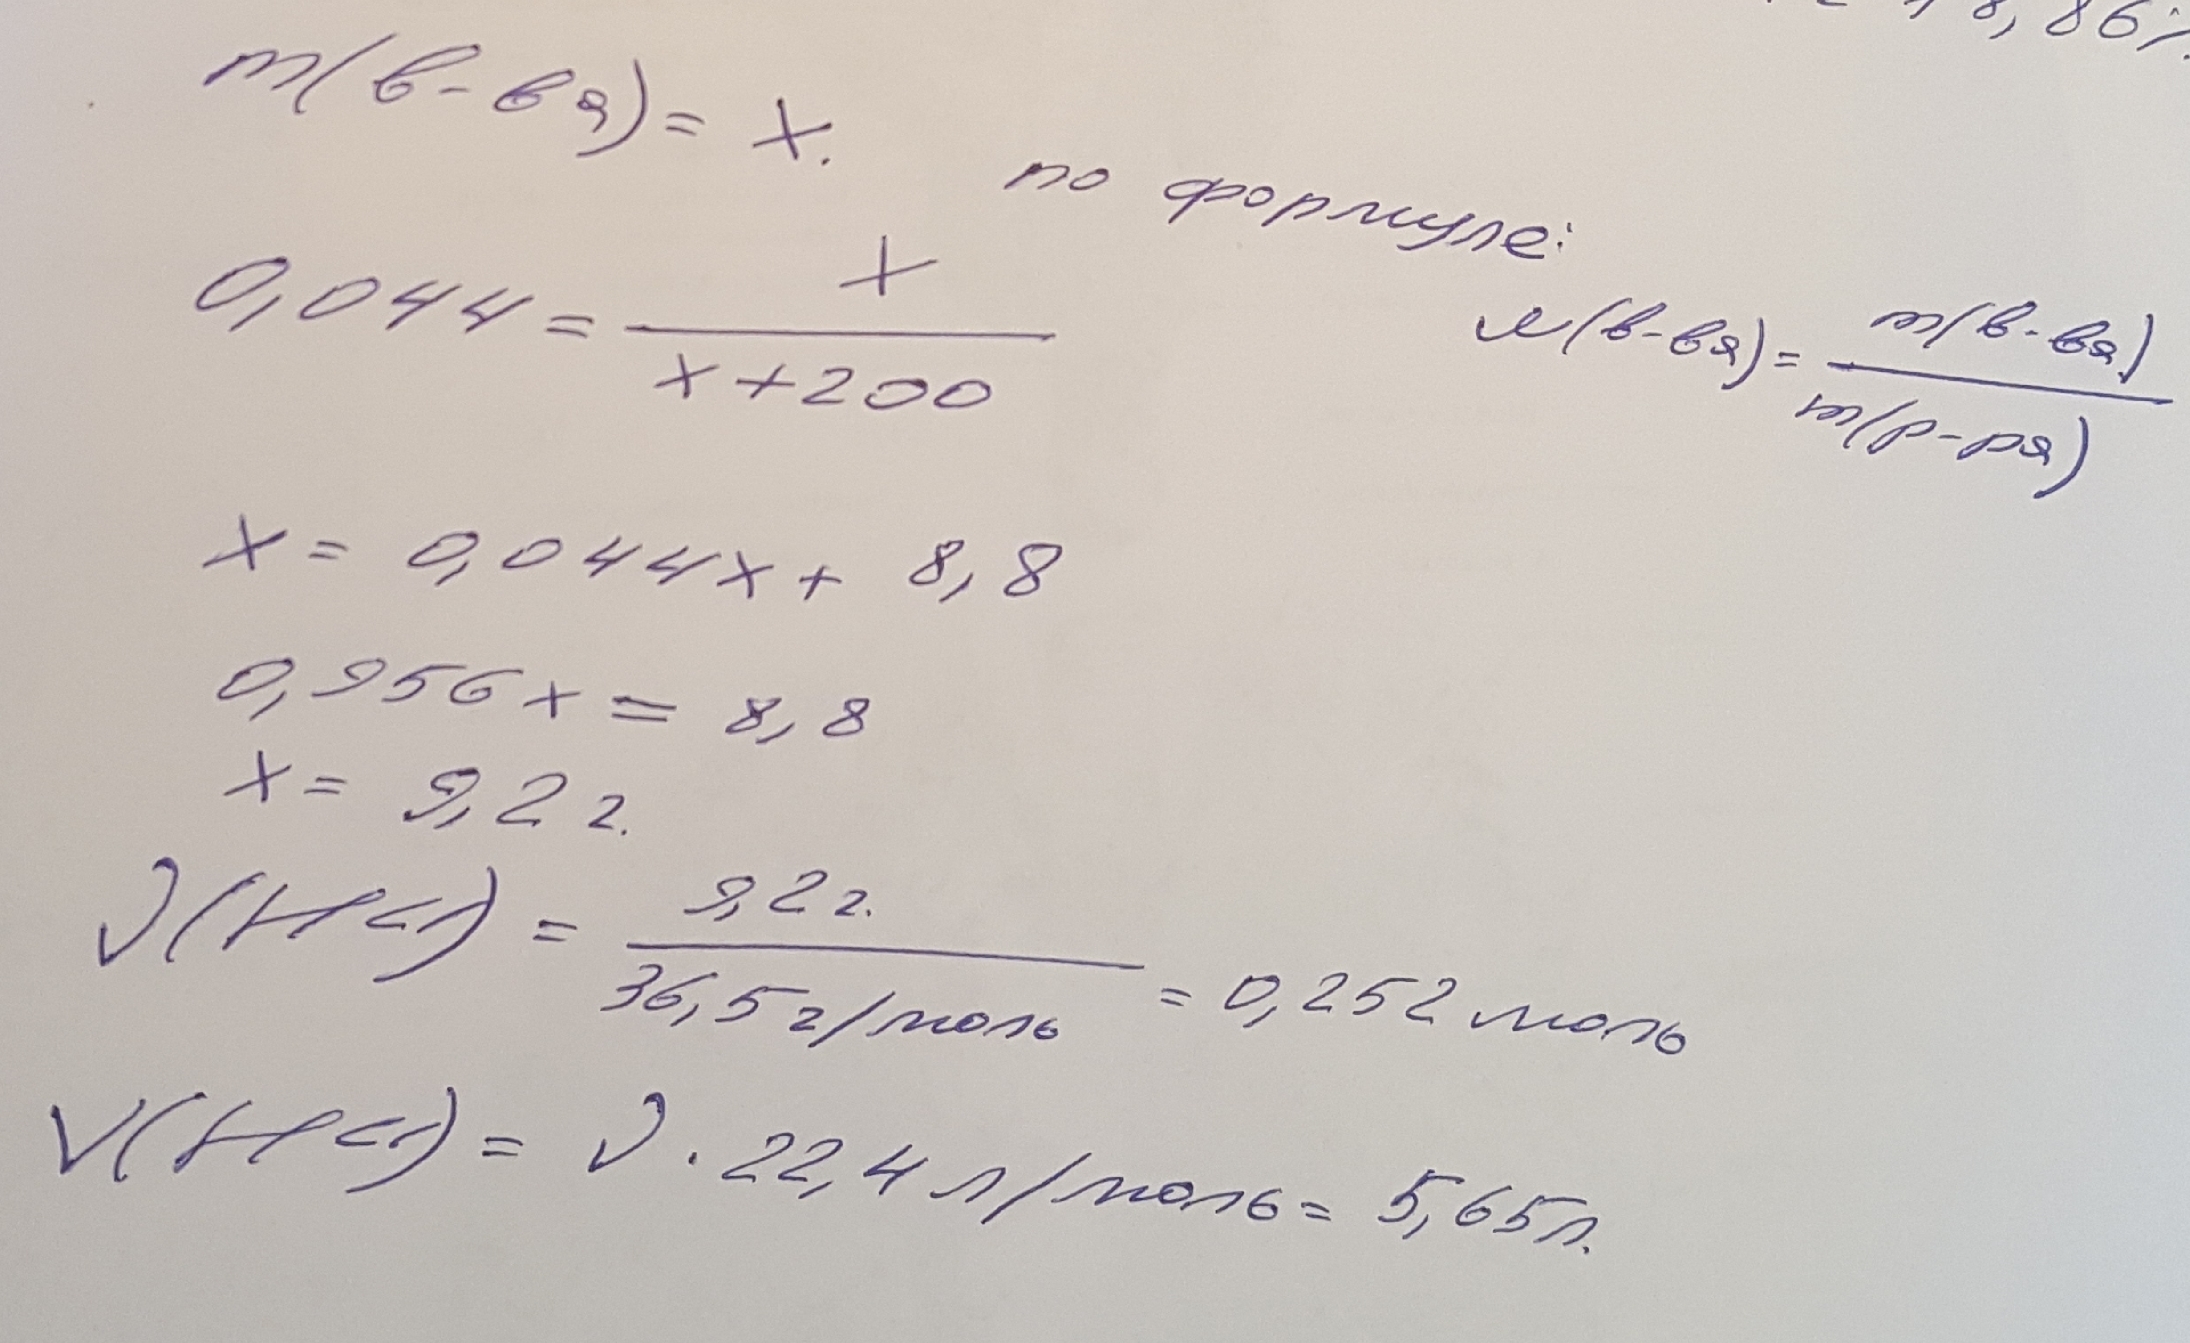 8,86%
m(в-ва) = x.
по формуле:
0,044 = x / (x + 200)
w(в-ва) = m(в-ва) / m(р-ра)
x = 0,044x + 8,8
0,956x = 8,8
x = 9,2 г.
ν(HCl) = 9,2 г. / 36,5 г/моль = 0,252 моль
V(HCl) = ν · 22,4 л/моль = 5,65 л.